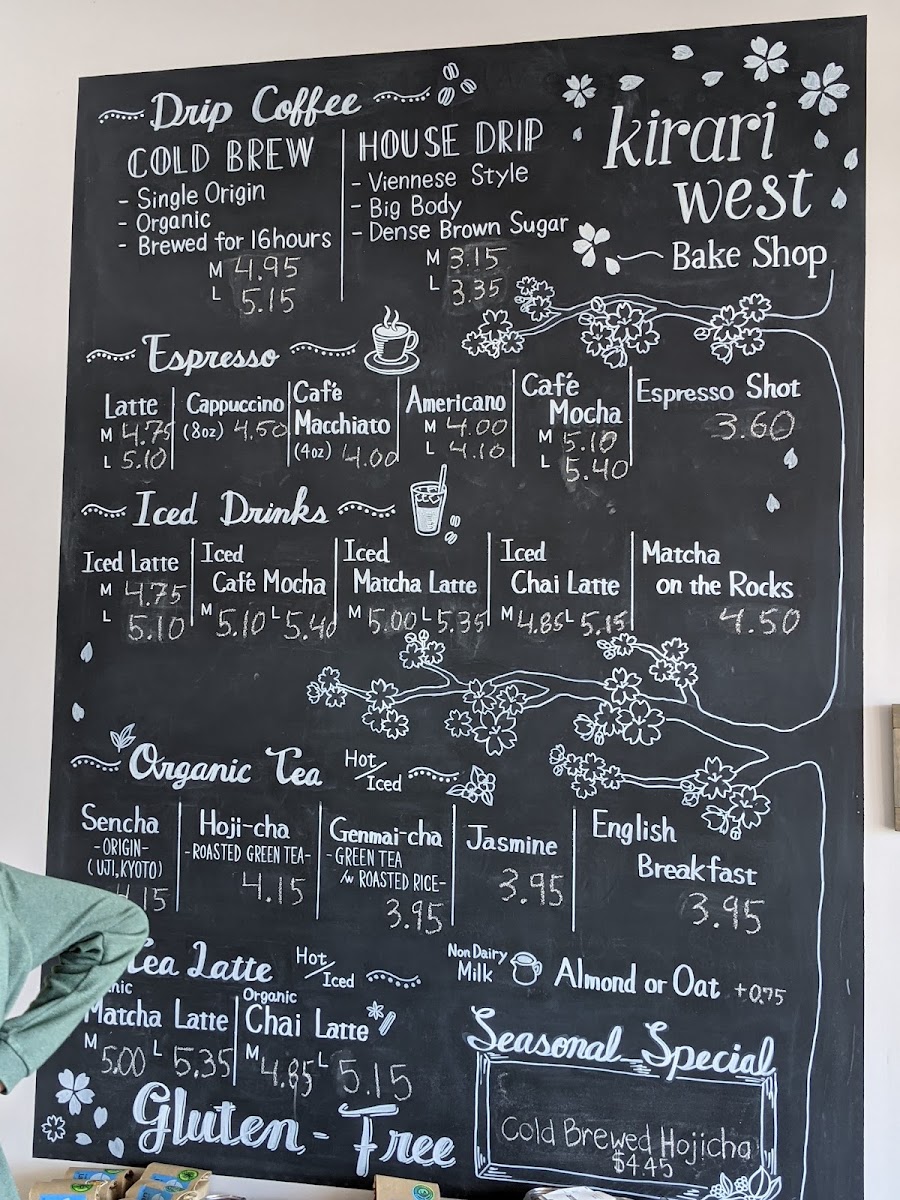 Drip Coffee
COLD BREW
- Single Origin
- Organic
- Brewed for 16hours
M 4.95
L 5.15
HOUSE DRIP
- Viennese Style
- Big Body
- Dense Brown Sugar
M 3.15
L 3.35
kirari
west
Bake Shop
Espresso
Latte
M 4.75
L 5.10
Cappuccino
(8oz) 4.50
Café
Macchiato
(4oz) 4.00
Americano
M 4.00
L 4.10
Café
Mocha
M 5.10
L 5.40
Espresso Shot
3.60
Iced Drinks
Iced Latte
M 4.75
L 5.10
Iced
Café Mocha
M 5.10 L 5.40
Iced
Matcha Latte
M 5.00 L 5.35
Iced
Chai Latte
M 4.85 L 5.15
Matcha
on the Rocks
4.50
Organic Tea Hot/Iced
Sencha
-ORIGIN-
(UJI,KYOTO)
4.15
Hoji-cha
-ROASTED GREEN TEA-
4.15
Genmai-cha
-GREEN TEA
/w ROASTED RICE-
3.95
Jasmine
3.95
English
Breakfast
3.95
Tea Latte Hot/Iced
Matcha Latte
M 5.00 L 5.35
Organic
Chai Latte
M 4.85 L 5.15
Non Dairy
Milk
Almond or Oat +0.75
Seasonal Special
Cold Brewed Hojicha
$4.45
Gluten-Free